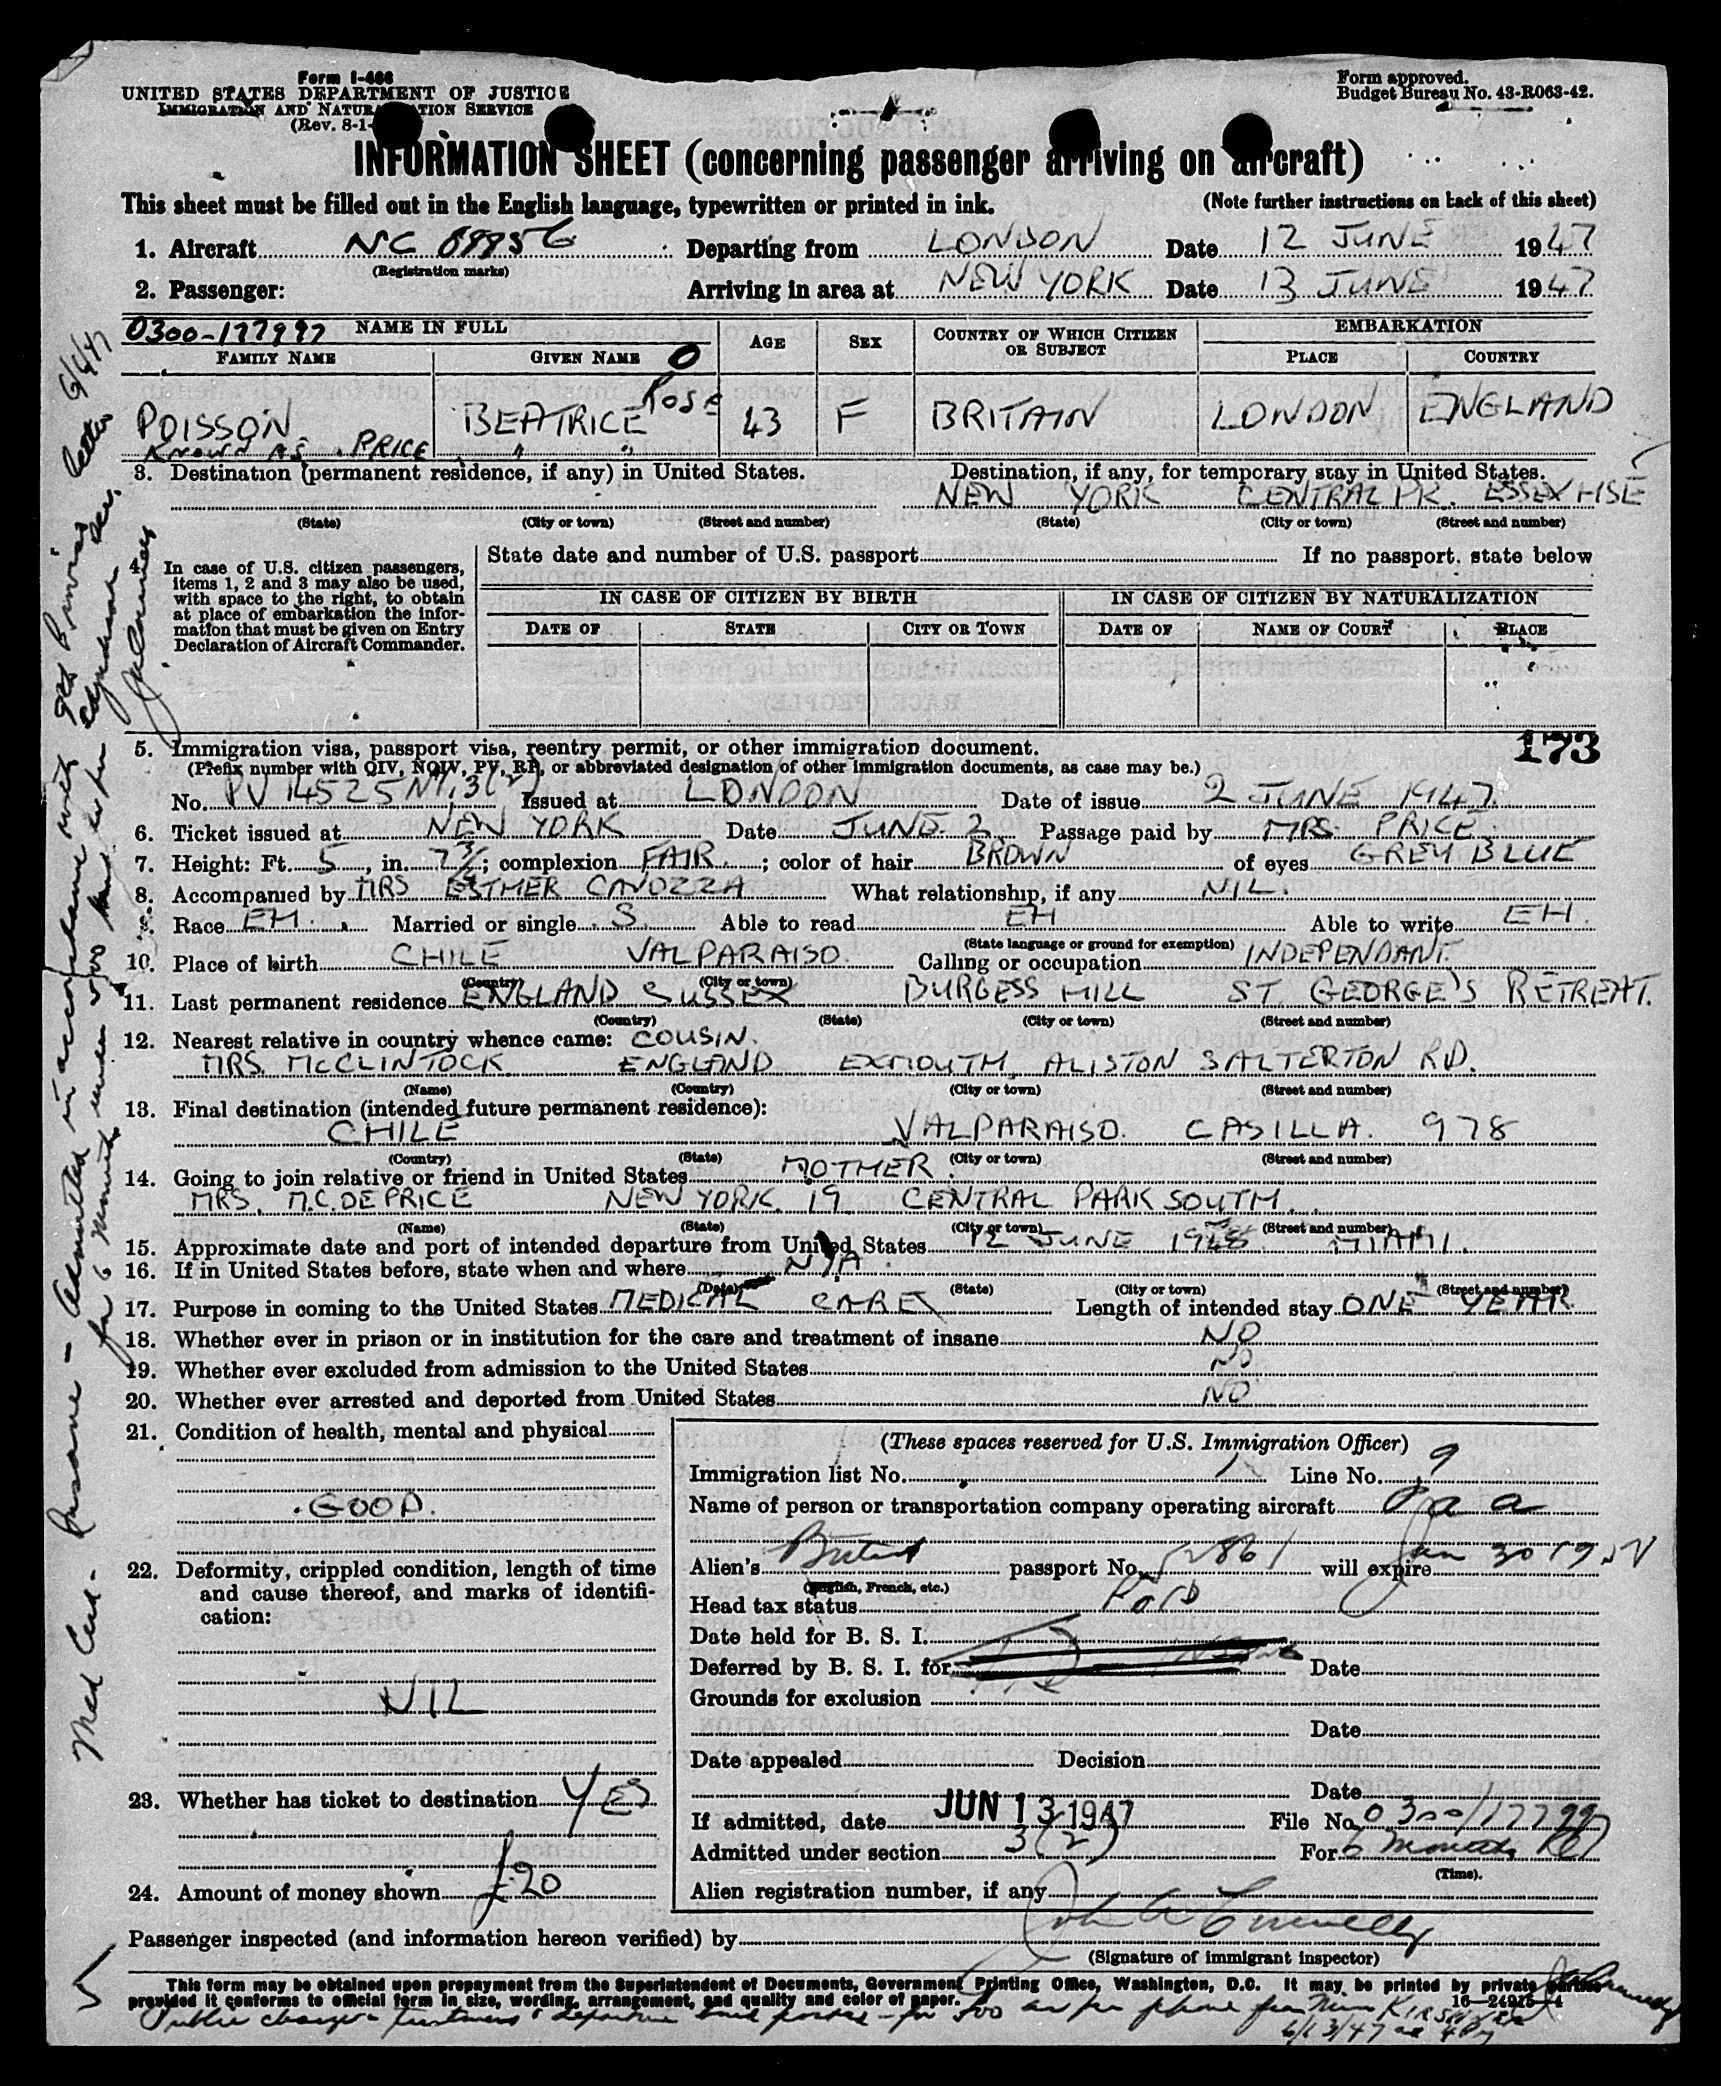 Form I-466
UNITED STATES DEPARTMENT OF JUSTICE
IMMIGRATION AND NATURALIZATION SERVICE
(Rev. 8-1-
Form approved.
Budget Bureau No. 43-R063-42.
INFORMATION SHEET (concerning passenger arriving on aircraft)
This sheet must be filled out in the English language, typewritten or printed in ink. (Note further instructions on back of this sheet)
1. Aircraft NC 88856 Departing from LONDON Date 12 JUNE 1947
(Registration marks)
2. Passenger: Arriving in area at NEW YORK Date 13 JUNE 1947
0300-177997 NAME IN FULL AGE SEX COUNTRY OF WHICH CITIZEN OR SUBJECT EMBARKATION
FAMILY NAME GIVEN NAME O PLACE COUNTRY
POISSON BEATRICE Rose 43 F BRITAIN LONDON ENGLAND
KNOWN AS PRICE " "
3. Destination (permanent residence, if any) in United States. Destination, if any, for temporary stay in United States.
NEW YORK CENTRAL PK. ESSEX HSE
(State) (City or town) (Street and number) (State) (City or town) (Street and number)
4. In case of U.S. citizen passengers, items 1, 2 and 3 may also be used, with space to the right, to obtain at place of embarkation the information that must be given on Entry Declaration of Aircraft Commander.
State date and number of U.S. passport If no passport, state below
IN CASE OF CITIZEN BY BIRTH IN CASE OF CITIZEN BY NATURALIZATION
DATE OF STATE CITY OR TOWN DATE OF NAME OF COURT PLACE
5. Immigration visa, passport visa, reentry permit, or other immigration document. 173
(Prefix number with QIV, NQIV, PV, RP, or abbreviated designation of other immigration documents, as case may be.)
No. PV 14525 3(2) Issued at LONDON Date of issue 2 JUNE 1947
6. Ticket issued at NEW YORK Date JUNE 2 Passage paid by MRS. PRICE
7. Height: Ft. 5, in. 7¾; complexion FAIR; color of hair BROWN of eyes GREY BLUE
8. Accompanied by MRS ESTHER CAVOZZA What relationship, if any NIL.
9. Race EH. Married or single S. Able to read EH Able to write EH.
(State language or ground for exemption)
10. Place of birth CHILE VALPARAISO. Calling or occupation INDEPENDANT.
(Country) (City or town)
11. Last permanent residence ENGLAND SUSSEX BURGESS HILL ST GEORGE'S RETREAT.
(Country) (State) (City or town) (Street and number)
12. Nearest relative in country whence came: COUSIN.
MRS. McCLINTOCK ENGLAND EXMOUTH, ALISTON SALTERTON RD.
(Name) (Country) (City or town) (Street and number)
13. Final destination (intended future permanent residence):
CHILE VALPARAISO. CASILLA. 978
(Country) (State) (City or town) (Street and number)
14. Going to join relative or friend in United States MOTHER.
MRS. M.C. DE PRICE NEW YORK. 19 CENTRAL PARK SOUTH.
(Name) (State) (City or town) (Street and number)
15. Approximate date and port of intended departure from United States 12 JUNE 1948 MIAMI.
16. If in United States before, state when and where N/A.
(Date) (State) (City or town) (Street and number)
17. Purpose in coming to the United States MEDICAL CARE Length of intended stay ONE YEAR
18. Whether ever in prison or in institution for the care and treatment of insane NO
19. Whether ever excluded from admission to the United States NO
20. Whether ever arrested and deported from United States NO
21. Condition of health, mental and physical
GOOD.
22. Deformity, crippled condition, length of time and cause thereof, and marks of identification:
NIL
23. Whether has ticket to destination YES
24. Amount of money shown £20
(These spaces reserved for U.S. Immigration Officer)
Immigration list No. 1 Line No. 9
Name of person or transportation company operating aircraft P a a
Alien's British passport No. 12861 will expire Jan 30 1952
(English, French, etc.)
Head tax status Paid
Date held for B. S. I.
Deferred by B. S. I. for Date
Grounds for exclusion
Date
Date appealed Decision
Date
If admitted, date JUN 13 1947 File No. 0300/177997
Admitted under section 3(2) For 6 months
(Time).
Alien registration number, if any
Passenger inspected (and information hereon verified) by John A Connelly
(Signature of immigrant inspector)
This form may be obtained upon prepayment from the Superintendent of Documents, Government Printing Office, Washington, D.C. It may be printed by private parties
provided it conforms to official form in size, wording, arrangement, and quality and color of paper. 16-24915-1
Public charge & departure bond posted for 500 as per phone from Miss KIRSHNER
6/13/47
Med Cert - Insane - Admitted in accordance with 9th Proviso letter 6/4/47
for 6 months under 500 bond